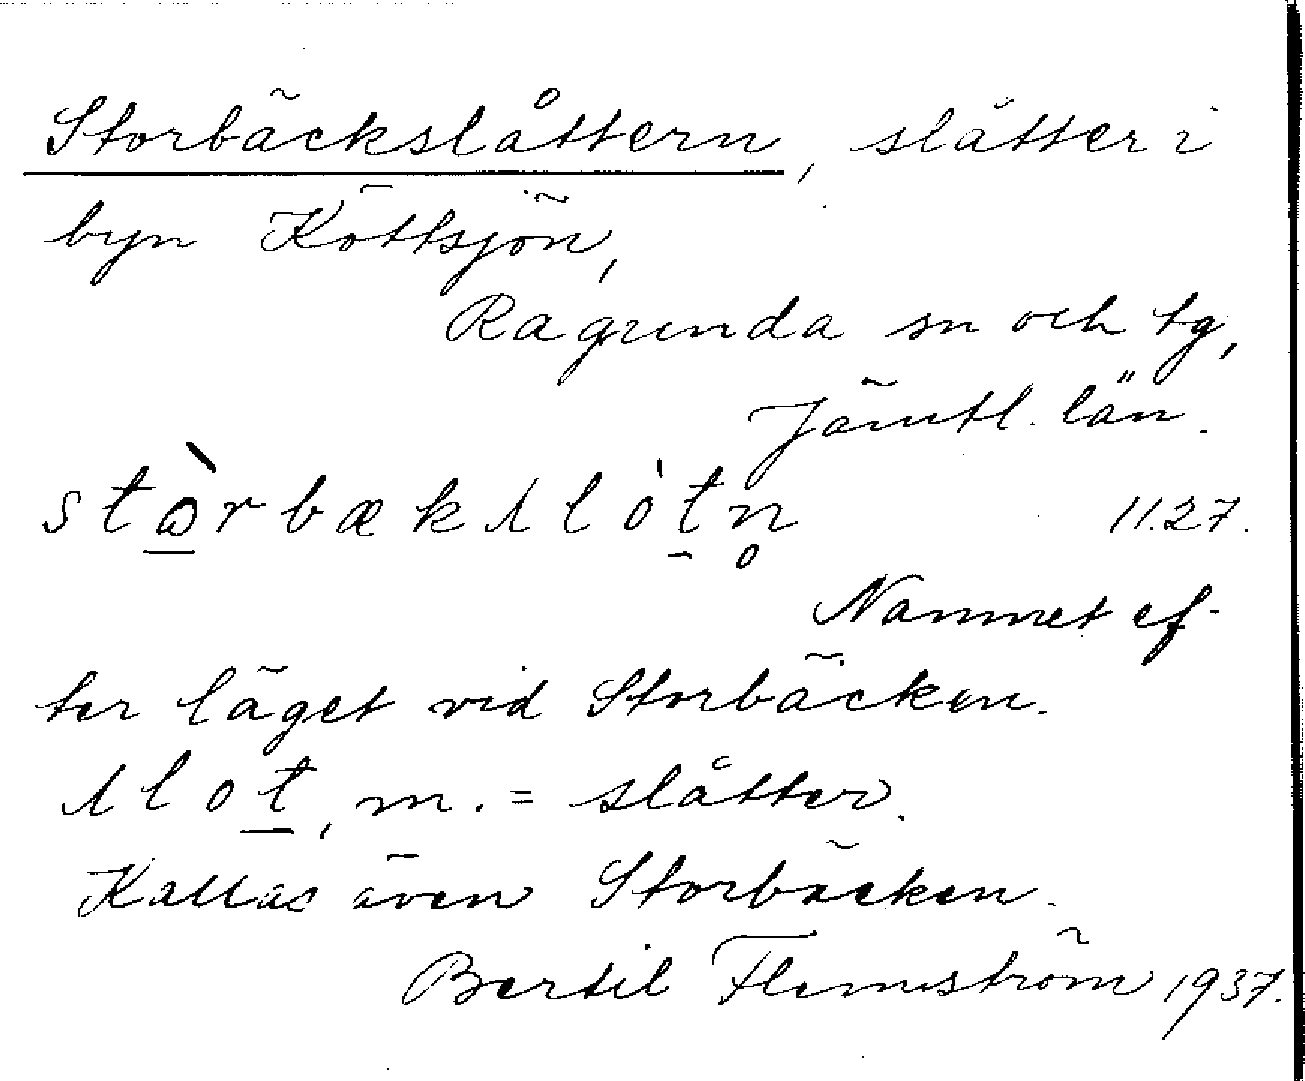 Storbäckslåttern, slåtter i
byn Köttsjön,
Ragunda sn och tg,
Jämtl. län.
stɷ̀rbækslòtn̥ 11.27.
Namnet ef-
ter läget vid Storbäcken.
slot, m. = slåtter.
Kallas även Storbäcken.
Bertil Flemström 1937.